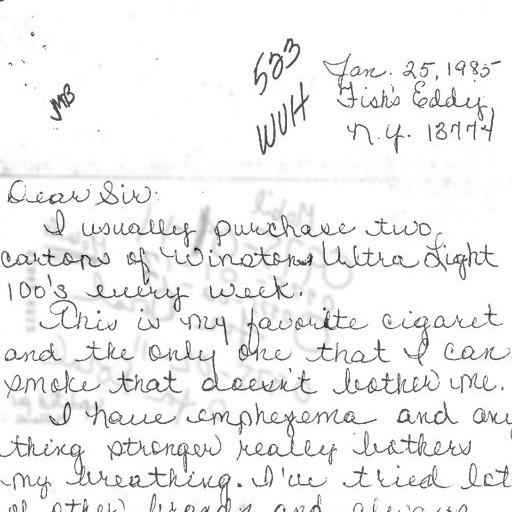 523
Jan. 25, 1985
MB
Fish's Eddy,
WUH
N.Y. 13774
Dear Sir:
I usually purchase two
cartons of Winstons Ultra Light
100's every week.
This is my favorite cigaret
and the only one that I can
smoke that doesn't bother me.
I have emphezema and any
thing stronger really bothers
my breathing. I've tried lot
of other brands and always